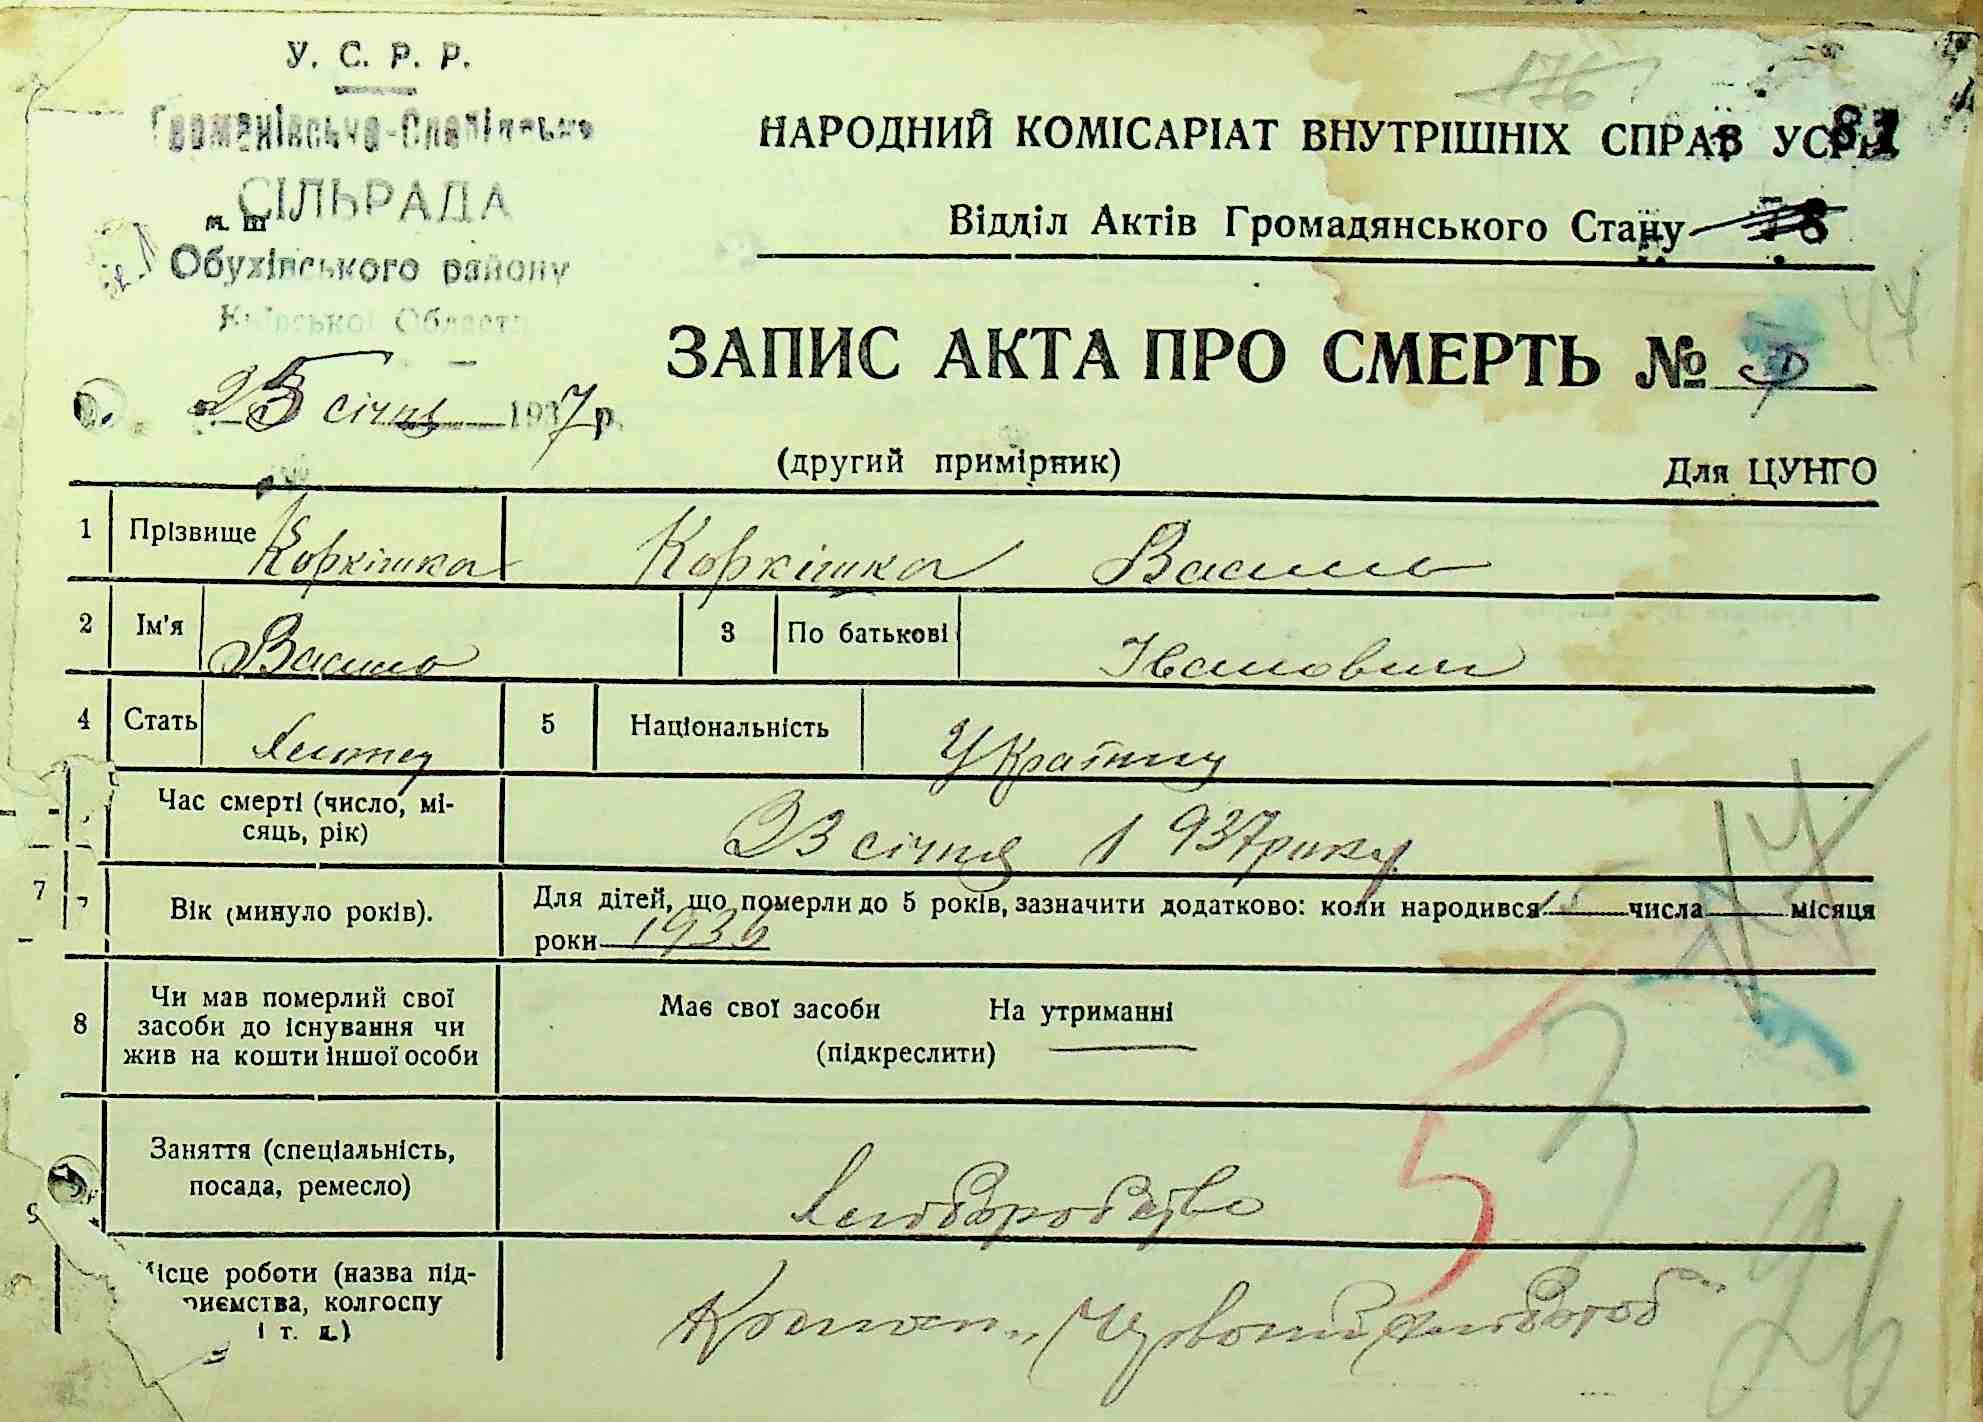 У. С. Р. Р.
176
НАРОДНИЙ КОМІСАРІАТ ВНУТРІШНІХ СПРАВ УСРР
81
СІЛЬРАДА
Відділ Актів Громадянського Стану
78
Обухівського району
Київської Області
ЗАПИС АКТА ПРО СМЕРТЬ №
44
25 січня 1937 р.
(другий примірник)
Для ЦУНГО
1 Прізвище Коркішка Коркішка Василь
2 Ім'я Василь 3 По батькові Іванович
4 Стать 5 Національність Україниц
Час смерті (число, мі-
сяць, рік)
23 січня 1937 року
7 7 Вік (минуло років).
Для дітей, що померли до 5 років, зазначити додатково: коли народився 15 числа місяця
роки 1936
8 Чи мав померлий свої
засоби до існування чи
жив на кошти іншої особи
Має свої засоби На утриманні
(підкреслити)
Заняття (спеціальність,
посада, ремесло)
Хлібробство
57
26
ісце роботи (назва під-
риємства, колгоспу
і т. д.)
Червоний хлібороб"